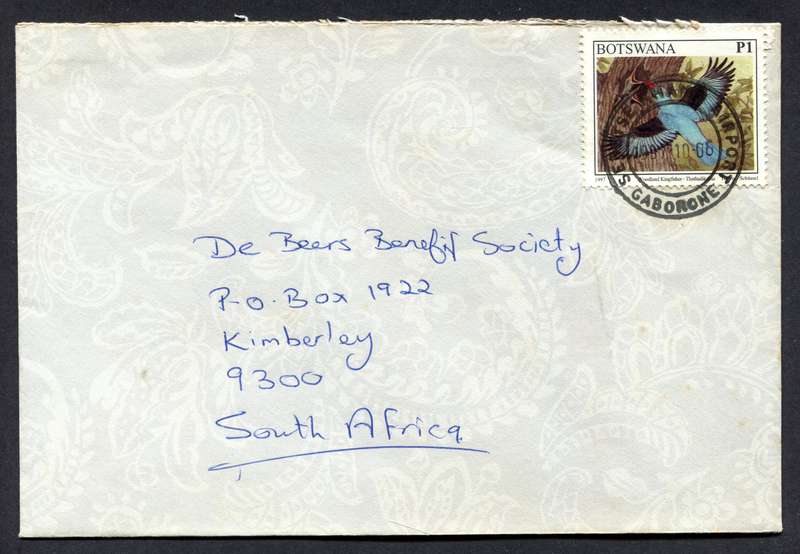 BOTSWANA P1
1997 Woodland Kingfisher
AIRPORT
10-06
GABORONE
De Beers Benefit Society
P.O. Box 1922
Kimberley
9300
South Africa